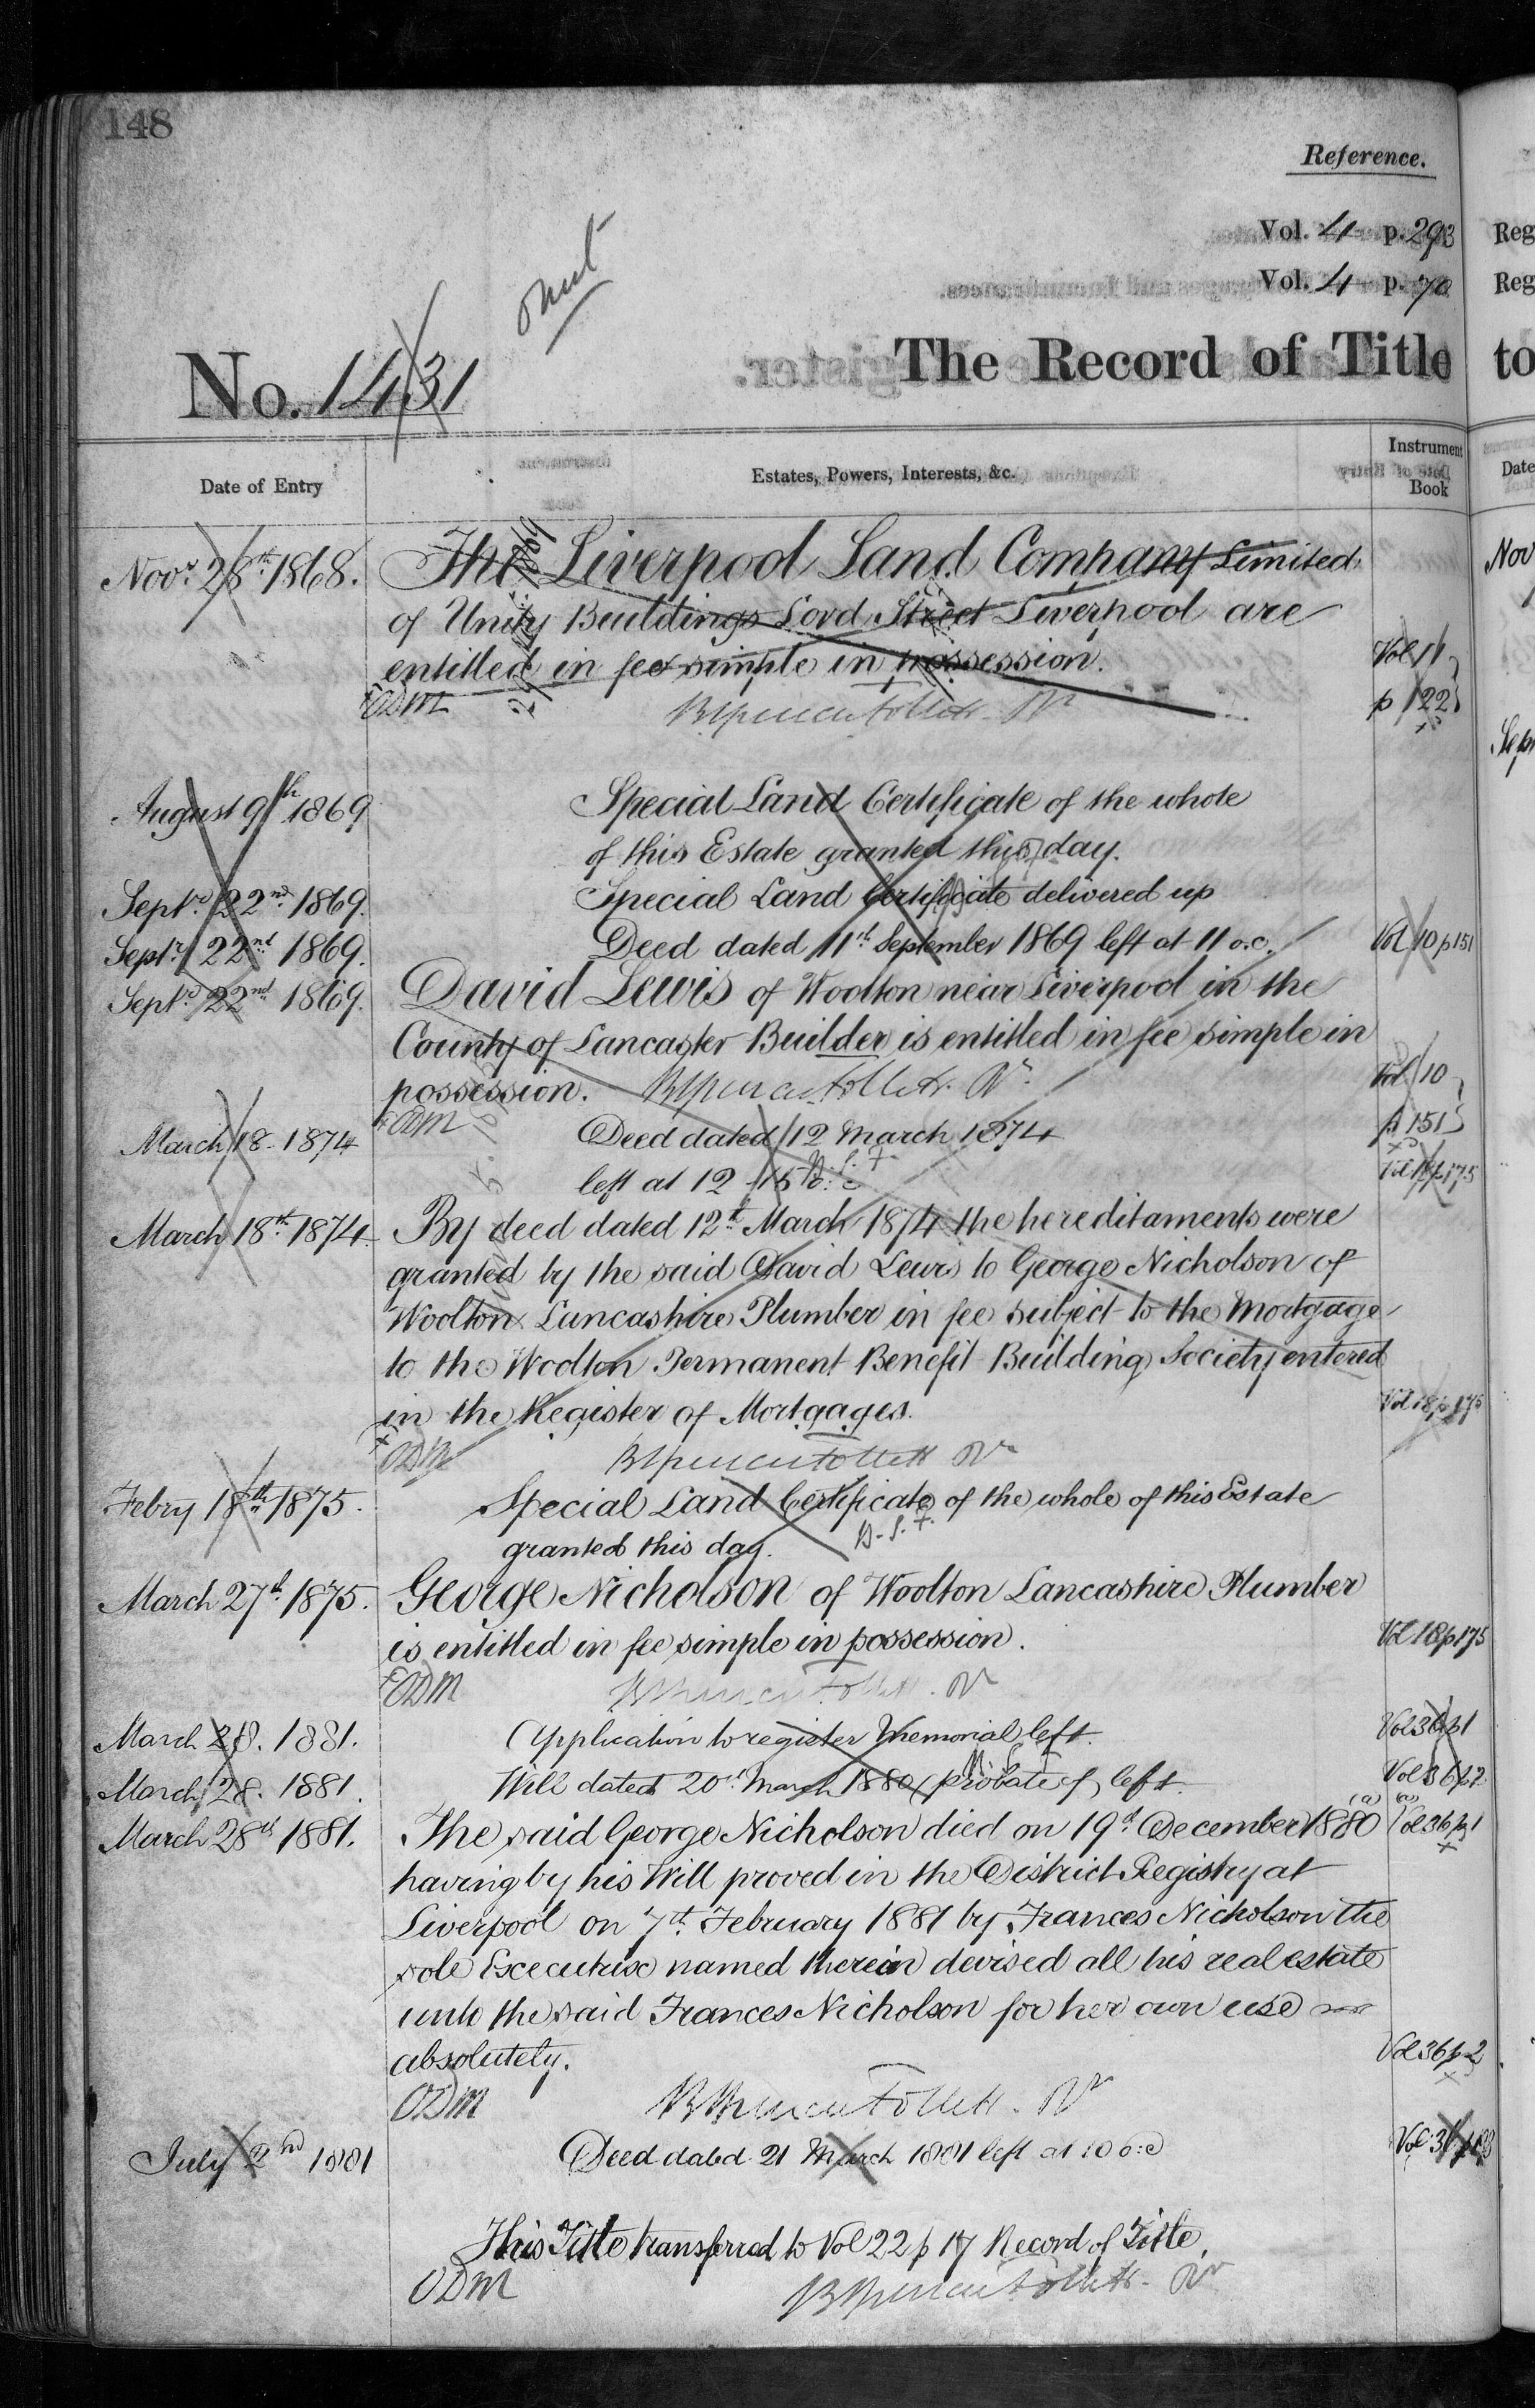 148
Reference.
Vol. 4 p. 293
Vol. 4 p. 70
omit
No. 1431
The Record of Title
Date of Entry
Estates, Powers, Interests, &c.
Instrument Book
Novr. 28th 1868. The Liverpool Land Company Limited
of Unity Buildings Lord Street Liverpool are
entitled in fee simple in possession. Vol 11
ODM p 122
August 9th 1869 Special Land Certificate of the whole
of this Estate granted this day.
Septr. 22nd 1869. Special Land Certificate delivered up
Septr. 22nd 1869. Deed dated 11th September 1869 left at 11 o.c. Vol 10 p 151
Septr. 22nd 1869. David Lewis of Woolton near Liverpool in the
County of Lancaster Builder is entitled in fee simple in
possession. Vol 10
ODM p 151
March 18. 1874 Deed dated 12 March 1874
left at 12.15 o.c
March 18th 1874. By deed dated 12th March 1874 the hereditaments were
granted by the said David Lewis to George Nicholson of
Woolton Lancashire Plumber in fee subject to the Mortgage
to the Woolton Permanent Benefit Building Society entered
in the Register of Mortgages. Vol 18 p 175
ODM
Febry 18th 1875. Special Land Certificate of the whole of this Estate
granted this day.
March 27th 1875. George Nicholson of Woolton Lancashire Plumber
is entitled in fee simple in possession. Vol 18 p 175
ODM
March 28. 1881. Application to register Memorial left. Vol 36 p 1
March 28. 1881. Will dated 20th March 1880 (probate of) left. Vol 36 p 2
March 28th 1881. The said George Nicholson died on 19th December 1880 (a) (a) Vol 36 p 1
having by his Will proved in the District Registry at
Liverpool on 7th February 1881 by Frances Nicholson the
sole Executrix named therein devised all his real estate
unto the said Frances Nicholson for her own use
absolutely. Vol 36 p 2
ODM
July 2nd 1881 Deed dated 21 March 1881 left at 10 o.c
This Title transferred to Vol 22 p 17 Record of Title.
ODM
Reg
Reg
to
Date
Nov
Sep